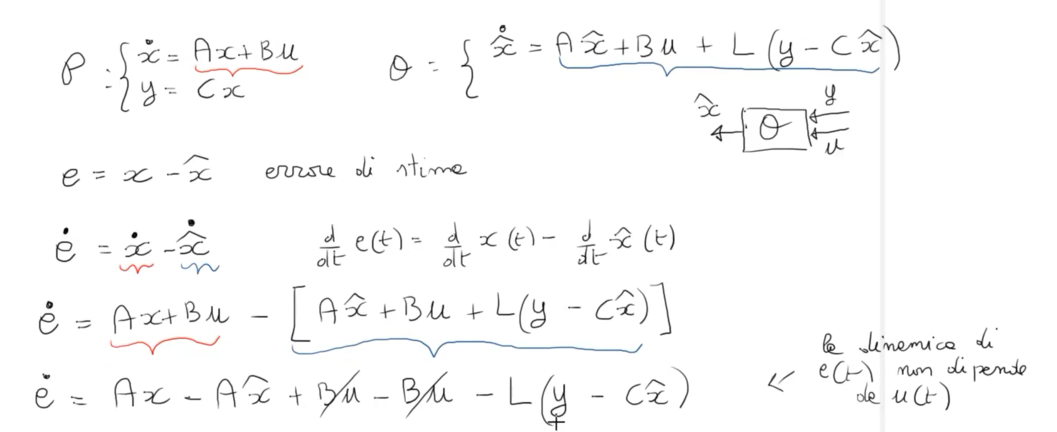 P : { ẋ = Ax + Bu
y = Cx
O = { x̂̇ = Ax̂ + Bu + L (y - Cx̂)
x̂ O y
u
e = x - x̂ errore di stima
ė = ẋ - x̂̇ d/dt e(t) = d/dt x(t) - d/dt x̂(t)
ė = Ax + Bu - [ Ax̂ + Bu + L(y - Cx̂) ]
ė = Ax - Ax̂ + Bu - Bu - L (y - Cx̂)
← la dinamica di
e(t) non dipende
da u(t)